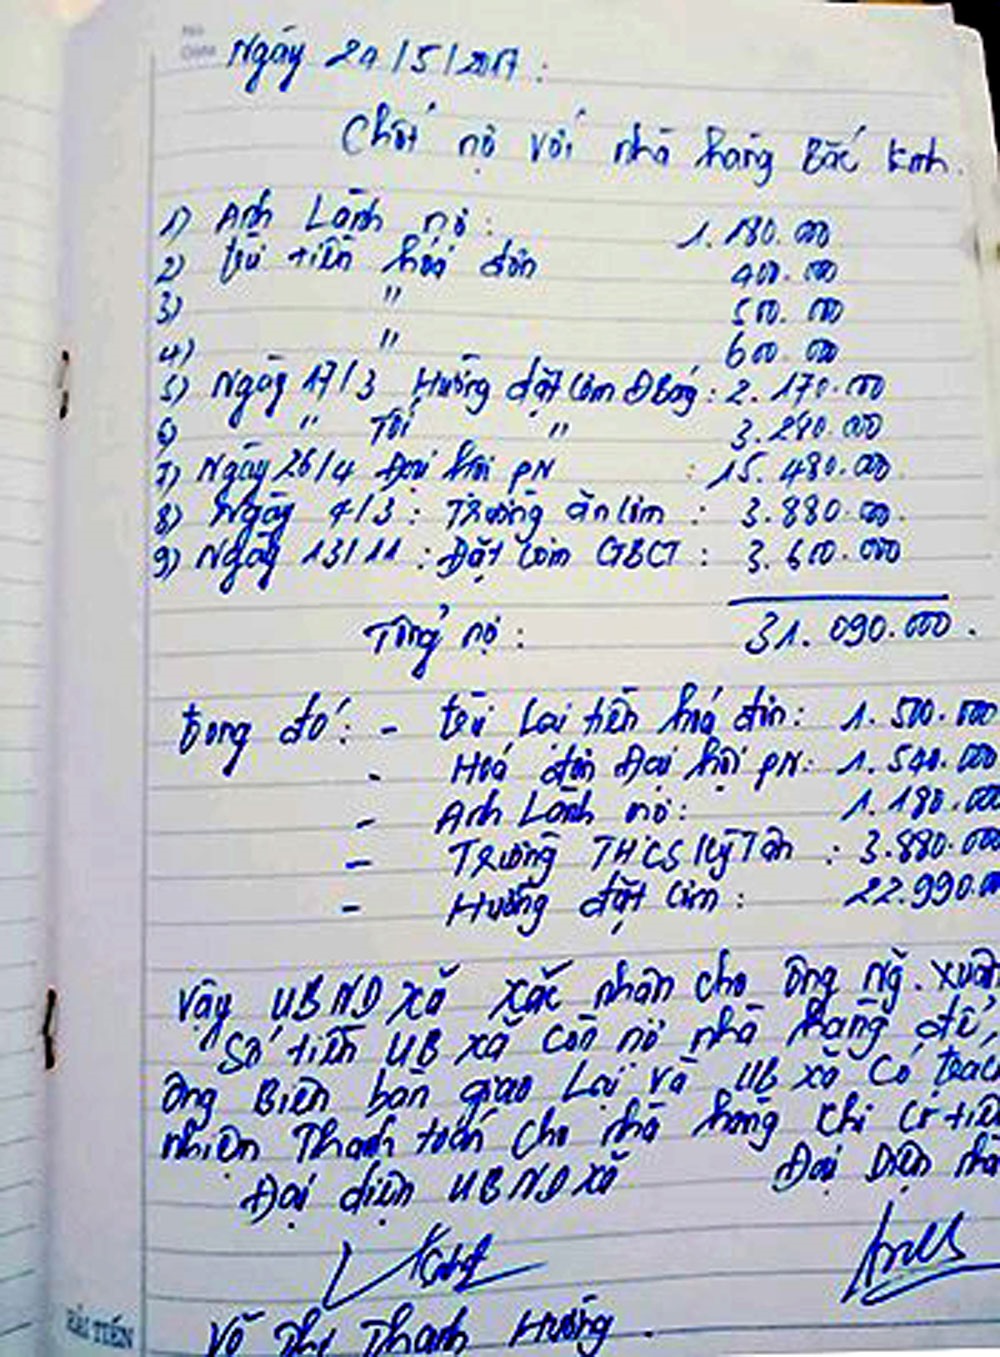 Ngày 24/5/2017:
Chốt nợ với nhà hàng Bắc Kinh.
1) Anh Lành nợ: 1.180.000
2) trừ tiền hoá đơn 400.000
3) " 500.000
4) " 600.000
5) Ngày 17/3 Hường đặt cơm Đ Bóng: 2.170.000
6) " Tối " 3.280.000
7) Ngày 26/4 Đại hội PN : 15.480.000
8) Ngày 4/3: Trường ăn cơm : 3.880.000.
9) Ngày 13/11: Đặt cơm GBCT: 3.600.000
Tổng nợ: 31.090.000.
trong đó: - trừ lại tiền hoá đơn: 1.500.000
- Hoá đơn Đại hội PN: 1.540.000
- Anh Lành nợ: 1.180.000
- Trường THCS Kỳ Tân : 3.880.000
- Hường đặt cơm: 22.990.0
Vậy UBND xã xác nhận cho ông Ng. Xuân
Số tiền UB xã còn nợ nhà hàng để
ông Biên bàn giao lại và UB xã có trác
nhiện Thanh toán cho nhà hàng khi có tiền
Đại diện UBND xã Đại Diện nhà
Võ Thị Thanh Hường.
HẢI TIẾN